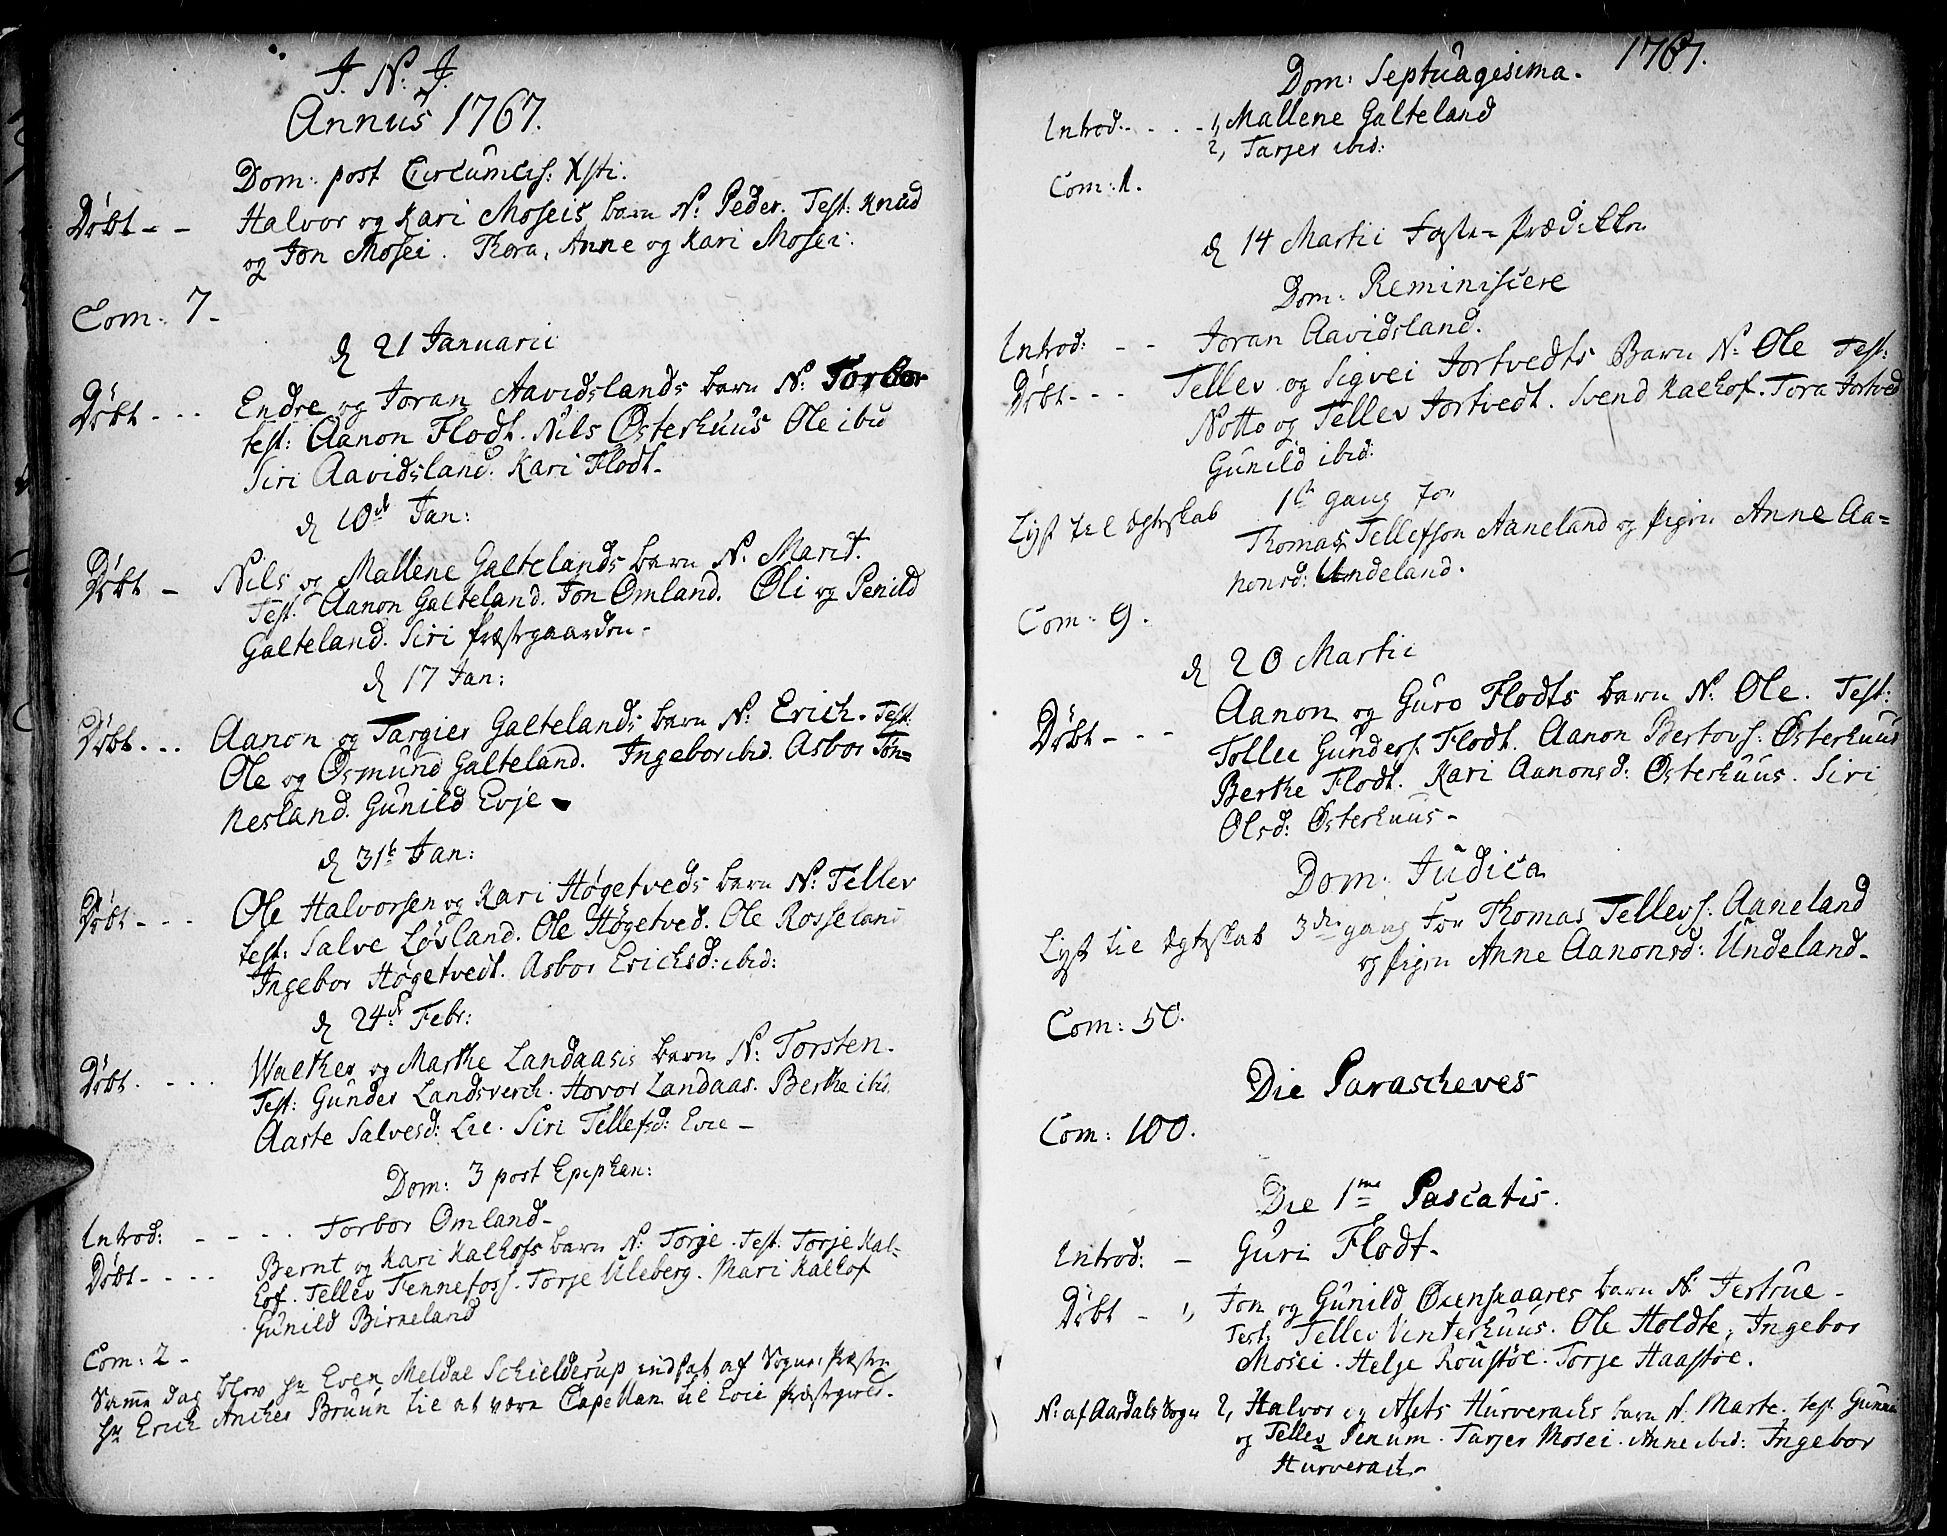 J. N. J.
Annus 1767.
Dom: post Circumcis: Xsti.
Døbt - - Halvor og Kari Moseis barn N: Peder. Test: Knud
og Jon Mosei. Thora, Anne og Kari Mosei.
Com: 7 -
d 21 Januarii
Døbt - - - Endre og Joran Aavidslands barn N: Torbor
test: Aanon Flodt. Nils Østerhuus Ole ibid
Siri Aavidsland. Kari Flodt -
d 10de Jan:
Døbt - Nils og Mallene Galtelands barn N: Marit.
Test. Aanon Galteland. Jon Omland. Oli og Penild
Galteland. Siri Præstegaarden -
d 17 Jan:
Døbt - - - Aanon og Targier Galtelands barn N: Erich. Test.
Ole og Osmund Galteland. Ingebor ibid. Asbor Tøn=
nesland. Gunild Evje -
d 31te Jan:
Døbt - - - Ole Halvorsen og Kari Høgetveds barn N: Tellev
test: Salve Løvland. Ole Høgetved. Ole Rosseland
Ingebor Høgetvedt. Asbor Erichsd: ibid:
d 24de Febr:
Døbt. - - - Walther og Marthe Landaasis barn N: Torsten.
Test: Gunder Landsverch. Hovor Landaas. Berthe ibid.
Aaste Salvesd: Lie. Siri Tellefsd: Evie -
Dom: 3 post Epiphan:
Introd: - - - - Torbor Omland -
Døbt - - - - Bernt og Kari Kalhofs barn N: Torje. Test. Torje Kal-
hof. Tellev Fennefoss. Torje Uleberg. Mari Kalhof
Gunild Birkeland
Com: 2 -
Samme dag blev Hr Even Meldal Schielderup indsat af Sogne: Præsten
Hr Erich Ancher Bruun til at være Capellan til Evie Præstegield.
1767.
Dom: Septuagesima.
Introd: - - - - 1, Mallene Galteland
2, Tarjer ibid:
Com: 1.
d 14 Martii Faste-Prædiken
Dom: Reminiscere
Introd: - - Joran Aavidsland.
Døbt - - - Tellev og Sigvei Jortvedts Barn N: Ole Test:
Notto og Tellev Jortvedt. Svend Kalhof. Tora Jortved
Gunild ibid:
Lyst til Ægteskab 1ste gang for
Thomas Tellefson Aaneland og pigen Anne Aa=
nonsd: Undeland.
Com: 9.
d 20 Martii
Døbt - - - Aanon og Guro Flodts barn N: Ole. Test:
Tollei Gunders. Flodt. Aanon Bertovs. Østerhuus
Berthe Flodt. Kari Aanonsd: Østerhuus. Siri
Olsd: Østerhuus -
Dom: Judica
Lyst til Ægteskab 3die gang for Thomas Tellevs. Aaneland
og pigen Anne Aanonsd: Undeland -
Com: 50.
Die Parascheves
Com: 100.
Die 1me Pascatis.
Introd: - Guri Flodt -
Døbt - 1, Jon og Gunild Øienskaares barn N: Jertrue -
Test: Tellev Vinterhuus. Ole Holdte, Ingebor
Mosei. Helje Roustøe. Torje Haastøe.
N: af Aardals Sogn 2, Halvor og Alets Hurverachs barn N. Marte. test Gunne
og Tellev Senum. Tarjer Mosei. Anne ibid: Ingebor
Hurverach -